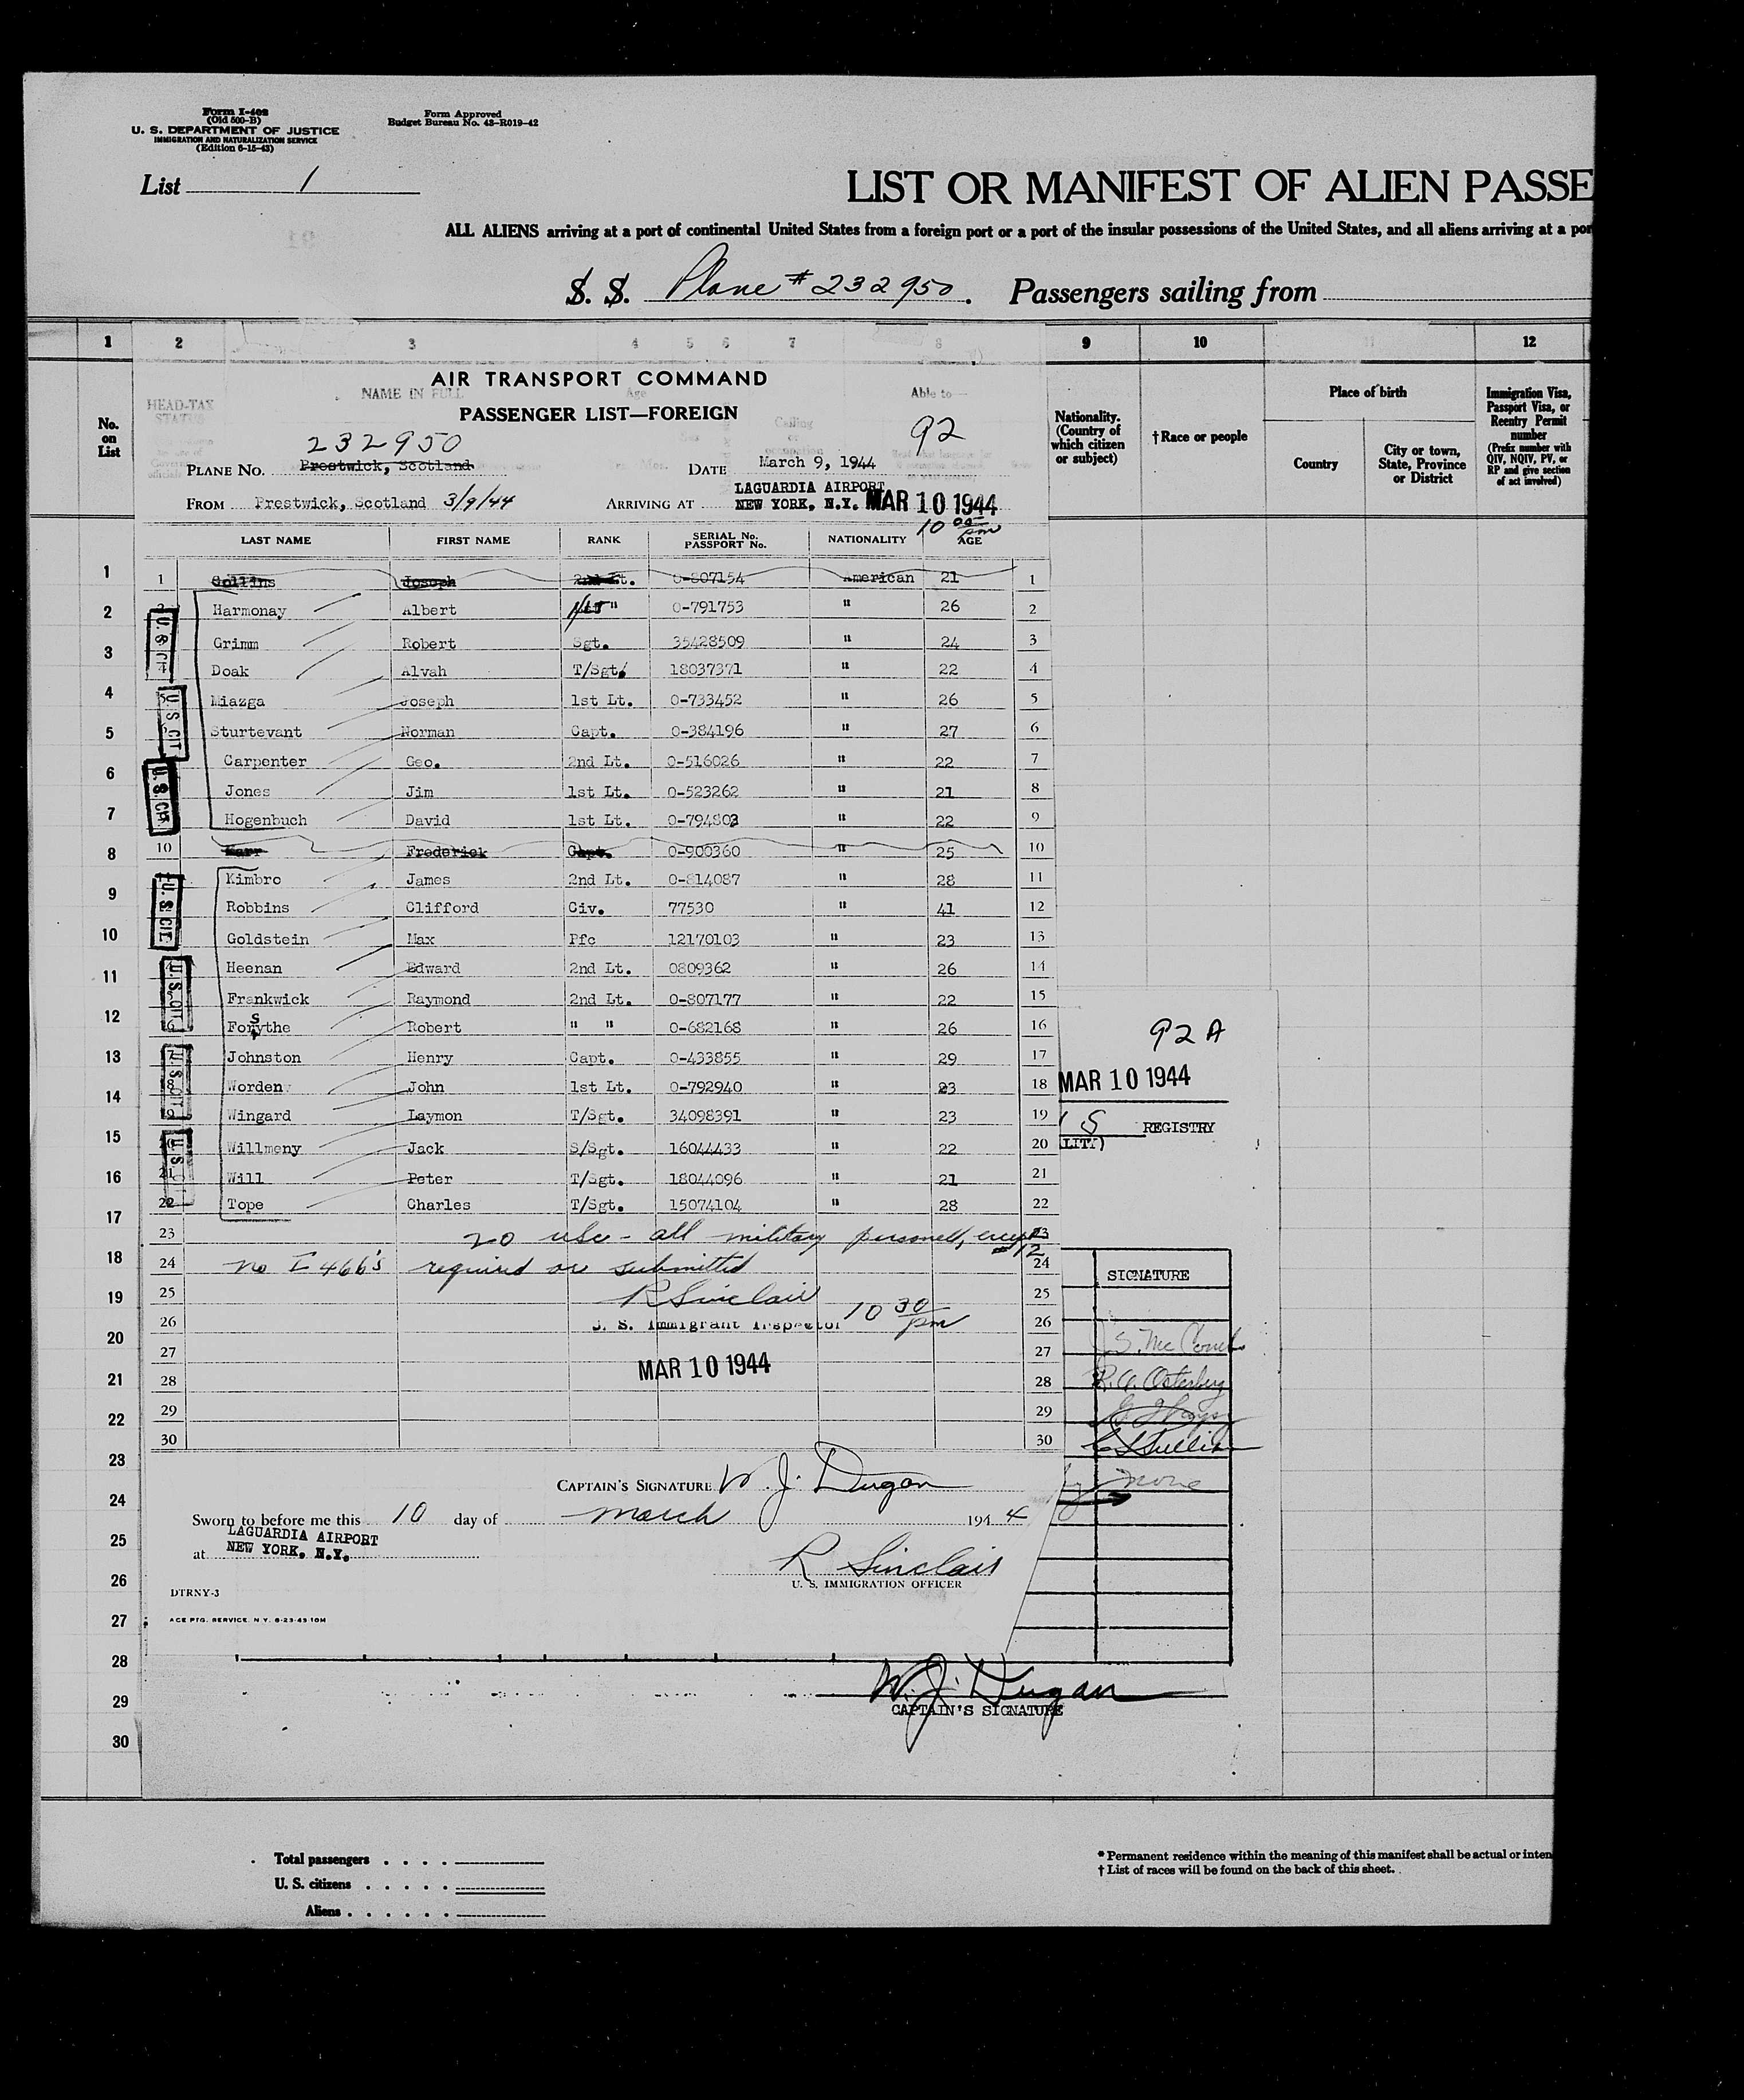 Form I-402
(Old 500-B)
U. S. DEPARTMENT OF JUSTICE
IMMIGRATION AND NATURALIZATION SERVICE
(Edition 6-15-43)
Form Approved
Budget Bureau No. 43-R019-42
List 1
LIST OR MANIFEST OF ALIEN PASSE
ALL ALIENS arriving at a port of continental United States from a foreign port or a port of the insular possessions of the United States, and all aliens arriving at a por
S. S. Plane # 232950. Passengers sailing from
1 2 3 4 5 6 7 8 9 10 11 12
No. on List
HEAD-TAX STATUS
NAME IN FULL
Age
Able to
Nationality. (Country of which citizen or subject)
† Race or people
Place of birth
Country
City or town, State, Province or District
Immigration Visa, Passport Visa, or Reentry Permit number
(Prefix number with QIV, NQIV, PV, or RP and give section of act involved)
AIR TRANSPORT COMMAND
PASSENGER LIST—FOREIGN
92
232950
PLANE NO. Prestwick, Scotland DATE March 9, 1944
FROM Prestwick, Scotland 3/9/44 ARRIVING AT LAGUARDIA AIRPORT NEW YORK, N.Y. MAR 10 1944
10 00 pm
LAST NAME FIRST NAME RANK SERIAL No. PASSPORT No. NATIONALITY AGE
1 Collins Joseph 2nd Lt. 0-807154 American 21 1
Harmonay Albert 1/Lt " 0-791753 " 26 2
Grimm Robert Sgt. 35428509 " 24 3
Doak Alvah T/Sgt. 18037371 " 22 4
5 Miazga Joseph 1st Lt. 0-733452 " 26 5
Sturtevant Norman Capt. 0-384196 " 27 6
Carpenter Geo. 2nd Lt. 0-516026 " 22 7
Jones Jim 1st Lt. 0-523262 " 21 8
Hogenbuch David 1st Lt. 0-794803 " 22 9
10 Karr Frederick Capt. 0-900360 " 25 10
Kimbro James 2nd Lt. 0-814087 " 28 11
Robbins Clifford Civ. 77530 " 41 12
Goldstein Max Pfc 12170103 " 23 13
Heenan Edward 2nd Lt. 0809362 " 26 14
Frankwick Raymond 2nd Lt. 0-807177 " 22 15
Forsythe Robert " " 0-682168 " 26 16
Johnston Henry Capt. 0-433855 " 29 17
Worden John 1st Lt. 0-792940 " 23 18
Wingard Laymon T/Sgt. 34098391 " 23 19
Willmeny Jack S/Sgt. 16044433 " 22 20
21 Will Peter T/Sgt. 18044096 " 21 21
22 Tope Charles T/Sgt. 15074104 " 28 22
23 20 usc - all military personell, except #12 23
24 no I 466's required or submitted 24
25 R Sinclair 25
26 U. S. Immigrant Inspector 10 30 pm 26
27 27
28 MAR 10 1944 28
29 29
30 30
U. S. CIT
U. S. CIT
U. S. CIT
U. S. CIT
U. S. CIT
U. S. CIT
U. S.
CAPTAIN'S SIGNATURE W. J. Dugan
Sworn to before me this 10 day of march 1944
at LAGUARDIA AIRPORT NEW YORK, N.Y.
R Sinclair
U. S. IMMIGRATION OFFICER
DTRNY-3
ACE PTG. SERVICE. N.Y. 6-23-43 10M
92 A
MAR 10 1944
S REGISTRY
LITY)
SIGNATURE
R. A. Osterberg
none
W. J. Dugan
CAPTAIN'S SIGNATURE
1
2
3
4
5
6
7
8
9
10
11
12
13
14
15
16
17
18
19
20
21
22
23
24
25
26
27
28
29
30
Total passengers
U. S. citizens
Aliens
* Permanent residence within the meaning of this manifest shall be actual or inten
† List of races will be found on the back of this sheet.